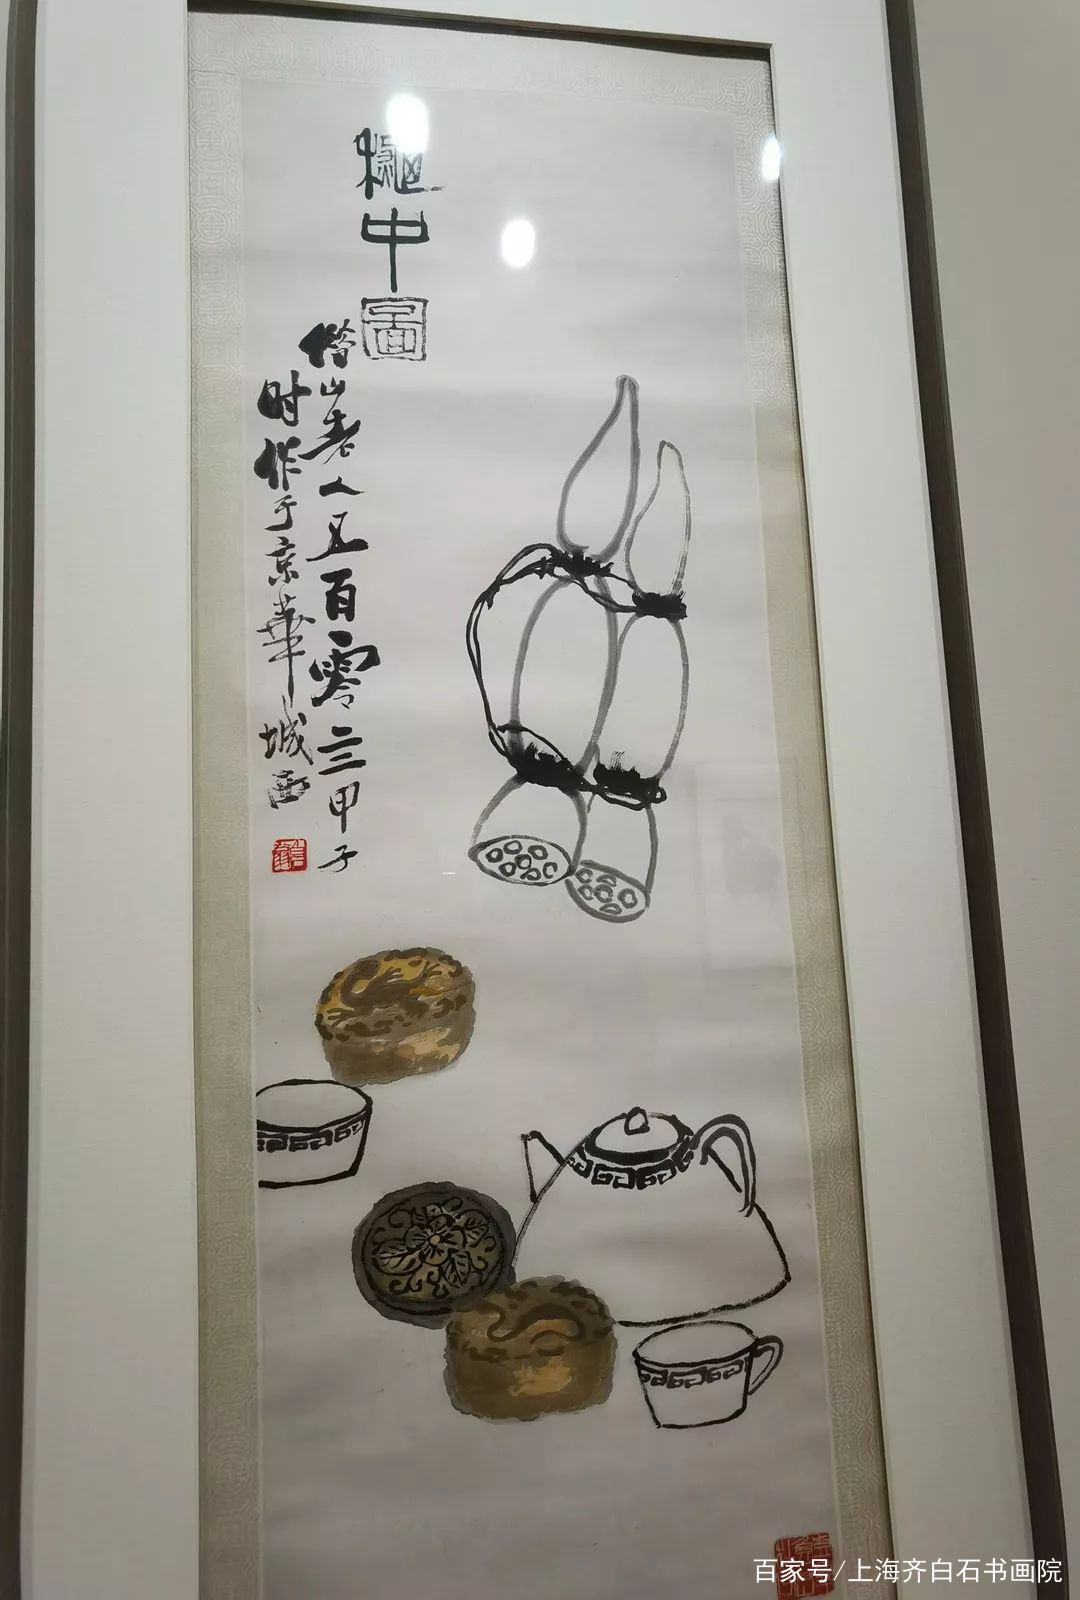 中圖
借山老人五百零三甲子
时作于京華城西
百家号/上海齐白石书画院